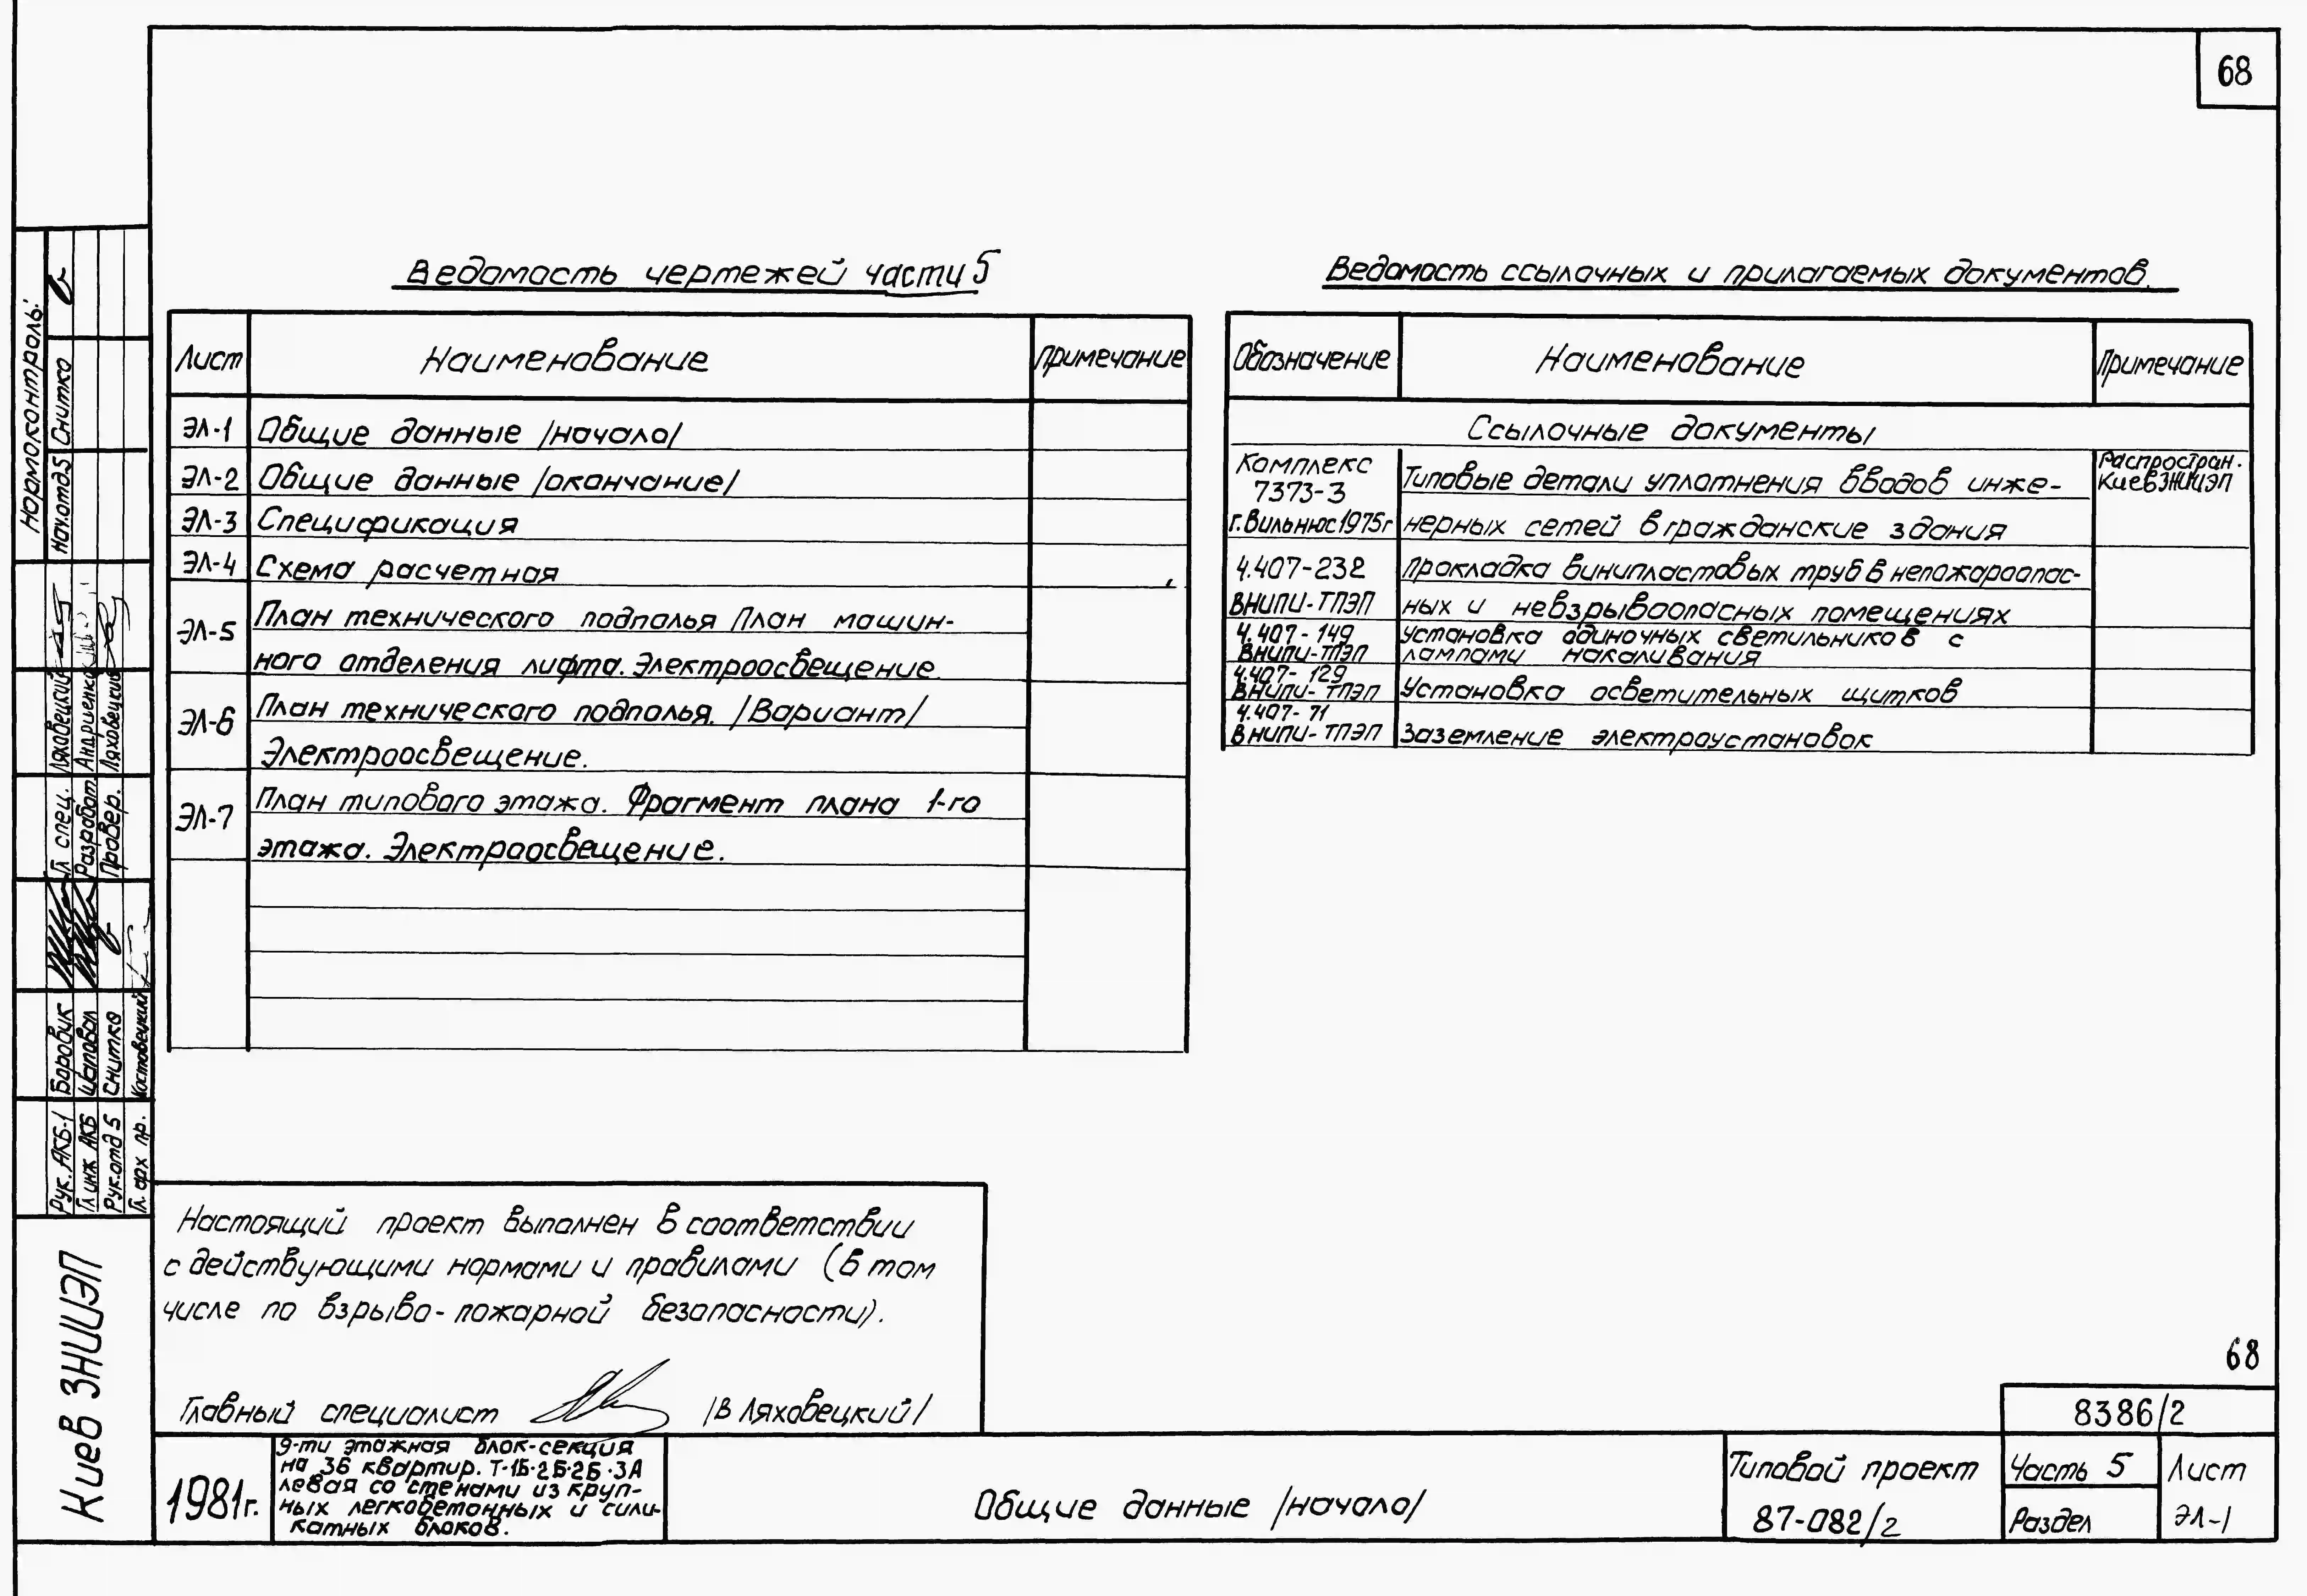 68
Ведомость чертежей части 5
Лист Наименование Примечание
ЭЛ-1 Общие данные /начало/
ЭЛ-2 Общие данные /окончание/
ЭЛ-3 Спецификация
ЭЛ-4 Схема расчетная
ЭЛ-5 План технического подполья План машин-
ного отделения лифта. Электроосвещение.
ЭЛ-6 План технического подполья. /Вариант/
Электроосвещение.
ЭЛ-7 План типового этажа. Фрагмент плана 1-го
этажа. Электроосвещение.
Ведомость ссылочных и прилагаемых документов.
Обозначение Наименование Примечание
Ссылочные документы
Комплекс
7373-3
г.Вильнюс 1975г
Типовые детали уплотнения вводов инже-
нерных сетей в гражданские здания
Распростран.
КиевЗНИИЭП
4.407-232
ВНИПИ-ТПЭП
Прокладка винипластовых труб в непожароопас-
ных и невзрывоопасных помещениях
4.407-149
ВНИПИ-ТПЭП
Установка одиночных светильников с
лампами накаливания
4.407-129
ВНИПИ-ТПЭП
Установка осветительных щитков
4.407-71
ВНИПИ-ТПЭП
Заземление электроустановок
Нормоконтроль:
Нач.отд.5 Снитко
Гл. спец. Ляховецкий
Разработ. Андриенко
Провер. Ляховецкий
Рук. АКБ-1 Боровик
Гл инж АКБ Шаповал
Рук.отд 5 Снитко
Гл. арх пр. Костовецкий
Киев ЗНИИЭП
Настоящий проект выполнен в соответствии
с действующими нормами и правилами (в том
числе по взрыво-пожарной безопасности).
Главный специалист /В Ляховецкий/
68
8386/2
1981г.
9-ти этажная блок-секция
на 36 квартир. Т-1Б·2Б·2Б·3А
левая со стенами из круп-
ных легкобетонных и сили-
катных блоков.
Общие данные /начало/
Типовой проект
87-082/2
Часть 5
Раздел
Лист
ЭЛ-1